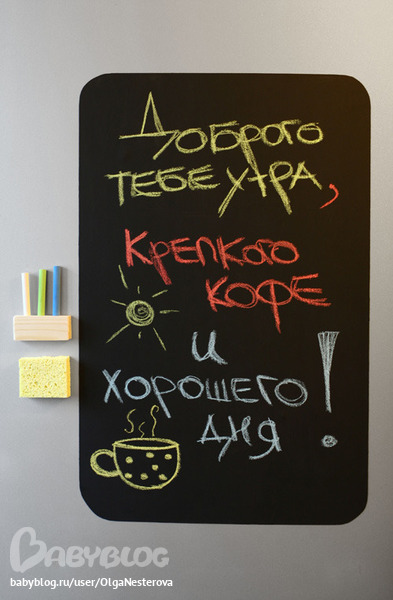 Доброго
тебе утра,
Крепкого
кофе
и
хорошего
дня!
BABYBLOG
babyblog.ru/user/OlgaNesterova